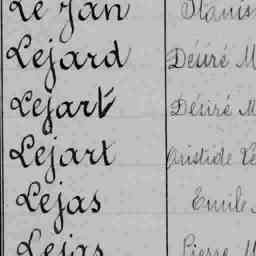 Le Jan Stanis
Lejard Désiré M
Lejart Désiré M
Lejart Aristide Lé
Lejas Emile
Lejas Pierre M